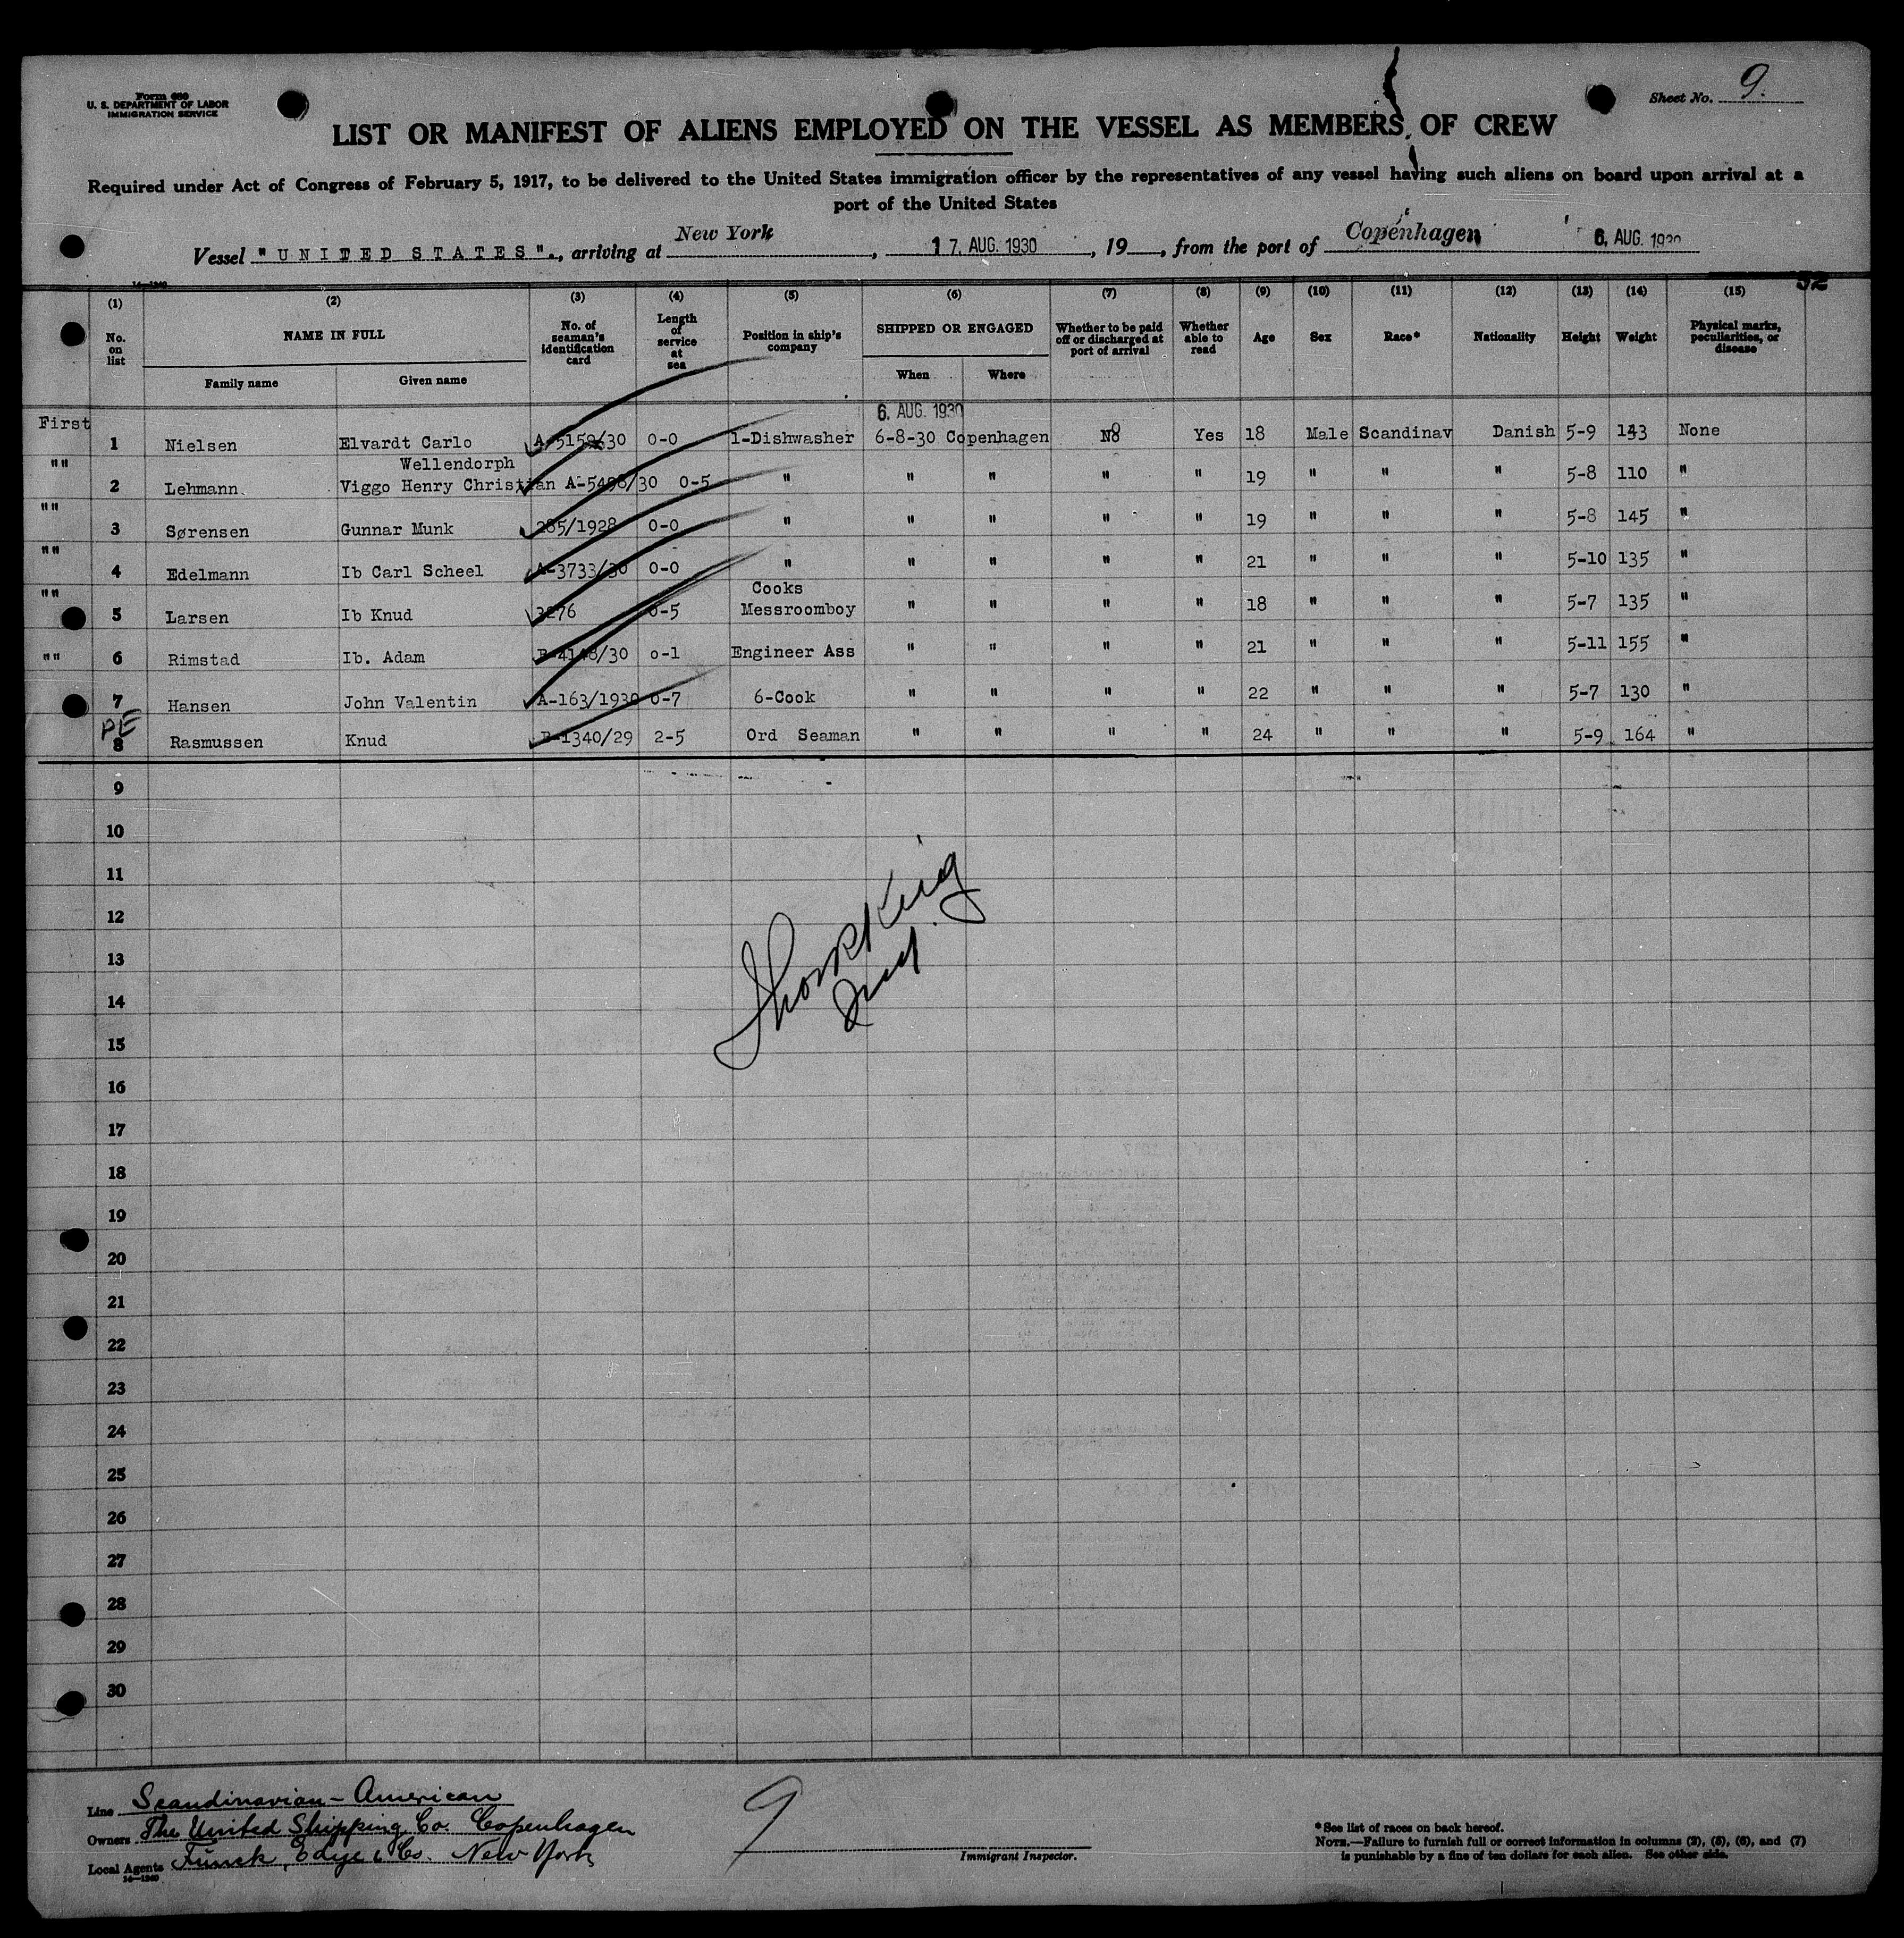 Form 680
U. S. DEPARTMENT OF LABOR
IMMIGRATION SERVICE
Sheet No. 9.
LIST OR MANIFEST OF ALIENS EMPLOYED ON THE VESSEL AS MEMBERS OF CREW
Required under Act of Congress of February 5, 1917, to be delivered to the United States immigration officer by the representatives of any vessel having such aliens on board upon arrival at a
port of the United States
Vessel "UNITED STATES"., arriving at New York, 17. AUG. 1930, 19, from the port of Copenhagen 6. AUG. 1930
52
(1) (2) (3) (4) (5) (6) (7) (8) (9) (10) (11) (12) (13) (14) (15)
No. on list NAME IN FULL No. of seaman's identification card Length of service at sea Position in ship's company SHIPPED OR ENGAGED Whether to be paid off or discharged at port of arrival Whether able to read Age Sex Race* Nationality Height Weight Physical marks, peculiarities, or disease
Family name Given name When Where
6. AUG. 1930
First 1 Nielsen Elvardt Carlo 0-0 1-Dishwasher 6-8-30 Copenhagen No Yes 18 Male Scandinav Danish 5-9 143 None
Wellendorph
"" 2 Lehmann Viggo Henry Christian A-5498/30 0-5 " " " " " 19 " " " 5-8 110 "
"" 3 Sørensen Gunnar Munk 285/1928 0-0 " " " " " 19 " " " 5-8 145 "
"" 4 Edelmann Ib Carl Scheel A-3733/30 0-0 " " " " " 21 " " " 5-10 135 "
Cooks
"" 5 Larsen Ib Knud 3276 0-5 Messroomboy " " " " 18 " " " 5-7 135 "
"" 6 Rimstad Ib. Adam B-4148/30 0-1 Engineer Ass " " " " 21 " " " 5-11 155 "
7 Hansen John Valentin A-163/1930 0-7 6-Cook " " " " 22 " " " 5-7 130 "
PE
8 Rasmussen Knud B-1340/29 2-5 Ord Seaman " " " " 24 " " " 5-9 164 "
9
10
11
12
13
14
15
16
17
18
19
20
21
22
23
24
25
26
27
28
29
30
Line Scandinavian-American
Owners The United Shipping Co. Copenhagen
Local Agents Funck, Edye & Co. New York
9
Immigrant Inspector.
*See list of races on back hereof.
NOTE.—Failure to furnish full or correct information in columns (2), (5), (6), and (7)
is punishable by a fine of ten dollars for each alien. See other side.